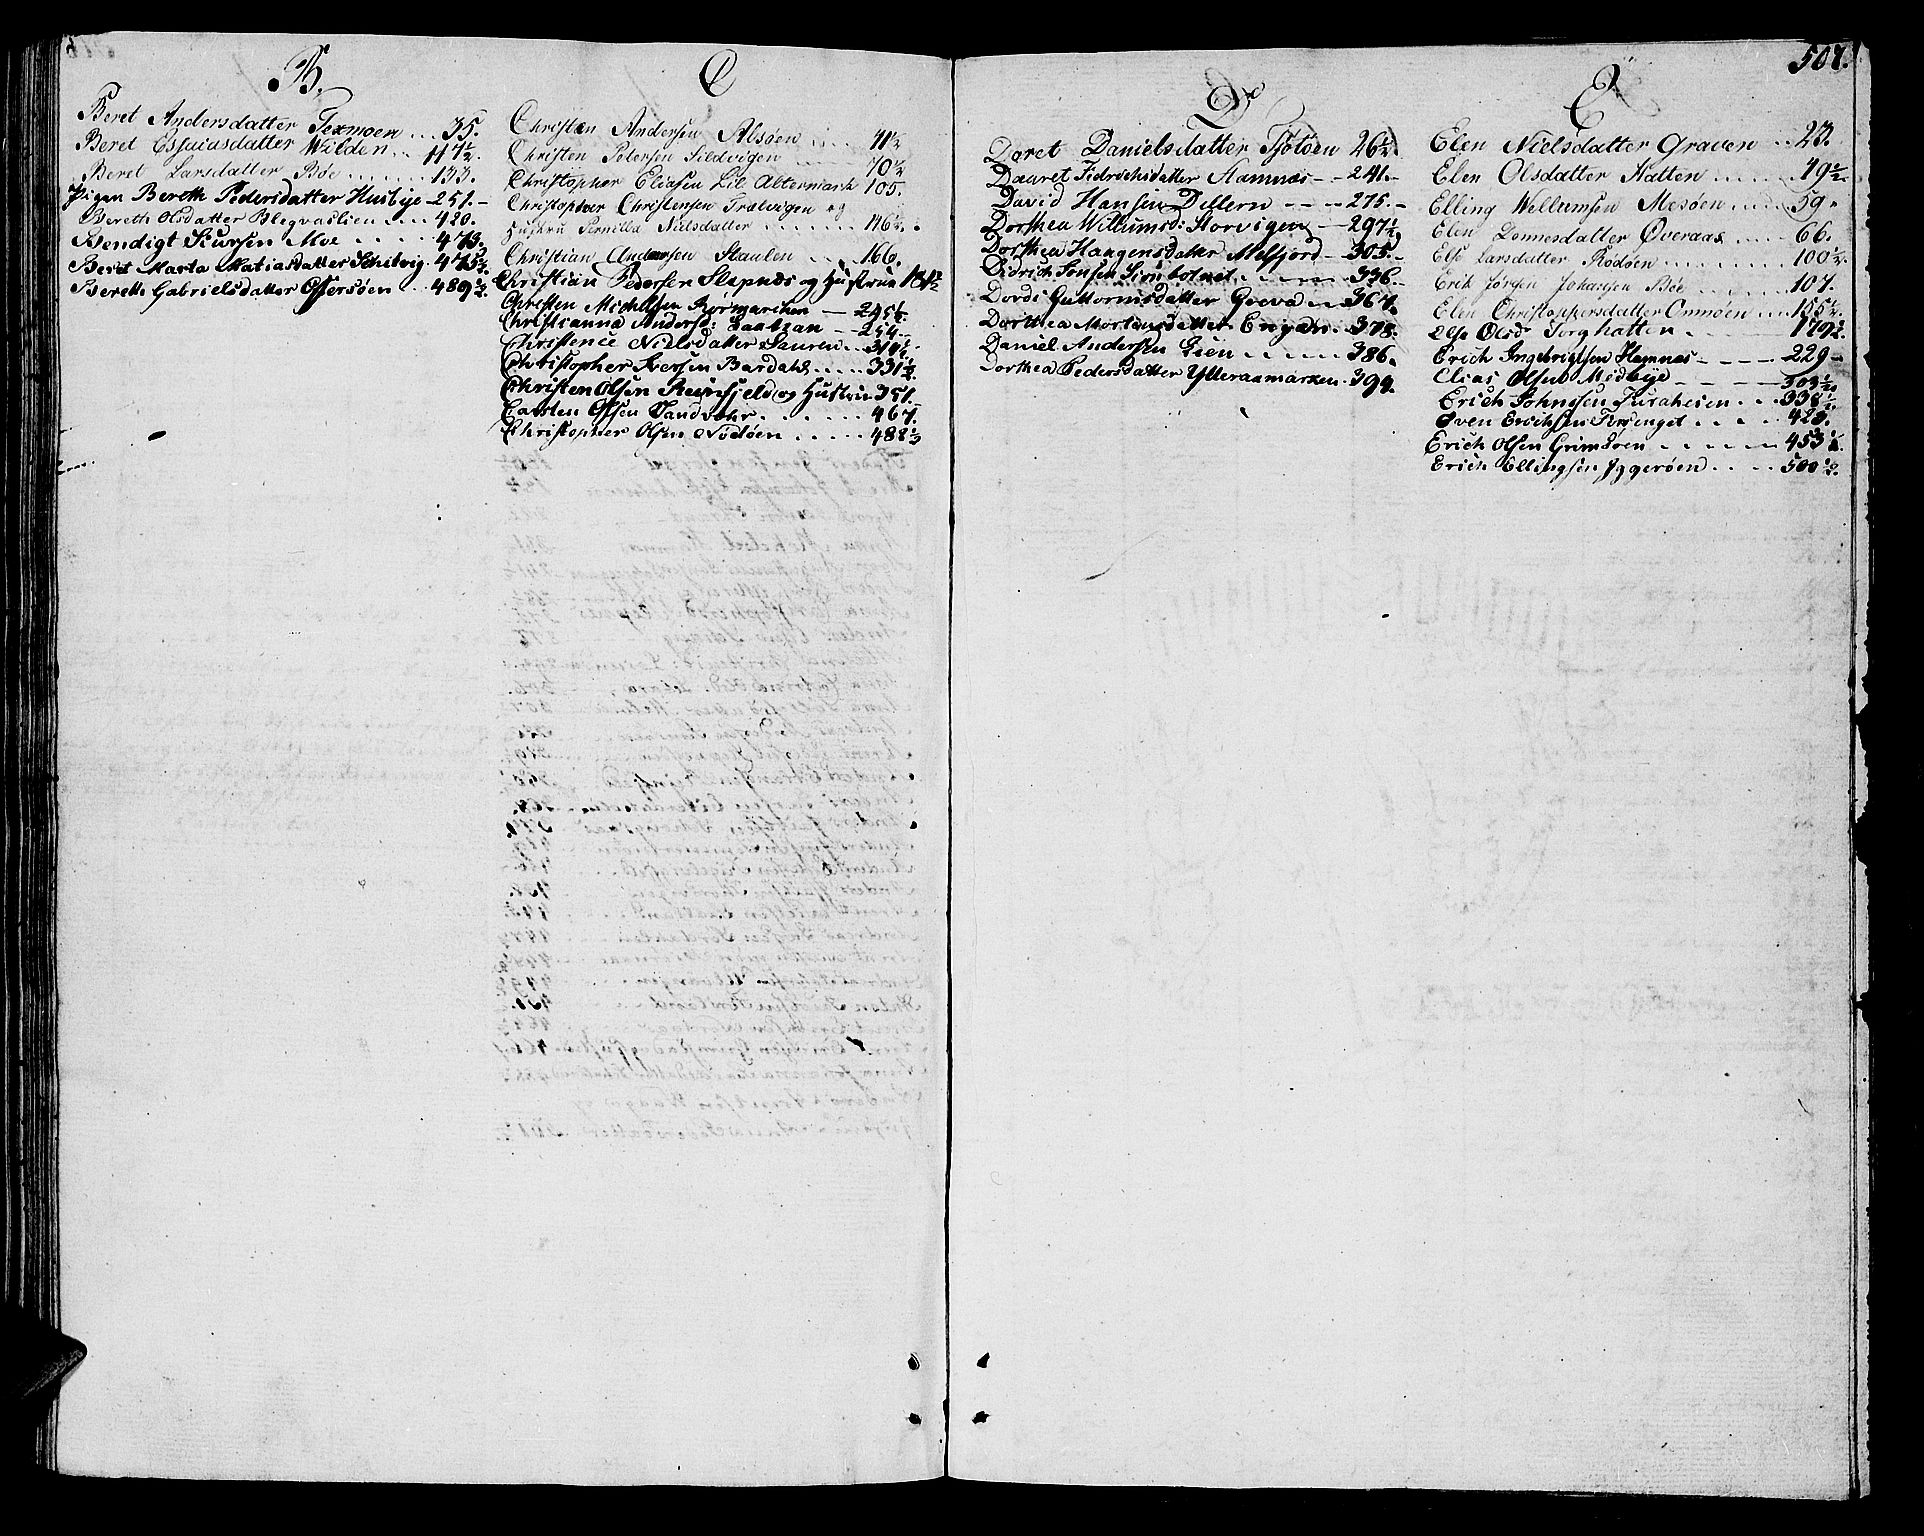 B.
Beret Andersdatter Texmoen . . . 35.
Beret Essaiasdatter Wilden . . 117½.
Beret Larsdatter Böe . . . . . . 133.
Pigen Bereth Pedersdatter Husbÿe - 251. -
Bereth Olsdatter Blegvaslien . . . 420.
Bendigt Siursen Moe . . . . . 473.
Beret Marta Matiasdatter Schitvig . 475½.
Bereth Gabrielsdatter Offersöen . . 489½.
C
Christen Andersen Alsöen . . . . . 41½
Christen Petersen Sildvigen . . . . 70½
Christopher Eliasen Lil Altermark 105.
Christopher Christensen Trælvigen og
Hustru Pernilla Nielsdatter . . . . . . . 146½.
Christian Andersen Staulen . . . . 166.
Christian Pedersen Slapnæs og Hustrue 181½
Christen Michelsen Rörmarchen — 245½.
Christianna Anders: Saabzan — 254. -
Christence Nielsdatter Sauren . . 310½.
Christopher Iversen Bardahl . . . . 331½.
Christen Olsen Reinfjeld og Hustrue 351.
Carsten Olsen Sandvær . . . . . . 467.
Christopher Olsen Nödöen . . . . . 488½
D
Daret Danielsdatter Tjötöen 26½.
Dauret Fidrichsdatter Hamnæs - - 241. -
David Hansen Dillern - - - - 275. -
Dorthea Willumsd: Storvigen - - 297½
Dorthea Haagensdatter Melfjord - 305. -
Didrich Jonsen Sionbotnet - - - 336.
Dordi Guttormsdatter Greva - - 364.
Dorthea Mortensdatter Engan . . 378.
Daniel Andersen Lien . . . . . . 386.
Dorthea Pedersdatter Ytteraamarken . 394.
507.
E
Elen Nielsdatter Graven . . 23.
Elen Olsdatter Hatten . . . . . . 49½.
Elling Wellumsen Mesöen . . . . 59.
Elen Zonnesdatter Øveraas . . . . 66.
Else Larsdatter Rödöen . . . . . . 100½.
Erik Jörgen Johansen Böe . . . . 107.
Elen Christophersdatter Omnöen . . . 155½.
Else Olsd Torghatten . 179½.
Erich Ingebrigtsen Hamnæs - - - - 229 -
Elias Olsen Medbÿe - - - - - 303½.
Erich Johnsen Furuheien . . . 338½.
Even Erichsen Forsenget . . . . 428.
Erich Olsen Grimsöen . . . . . . 453½.
Erich Ellingsen Iggeröen . . . . 500½.